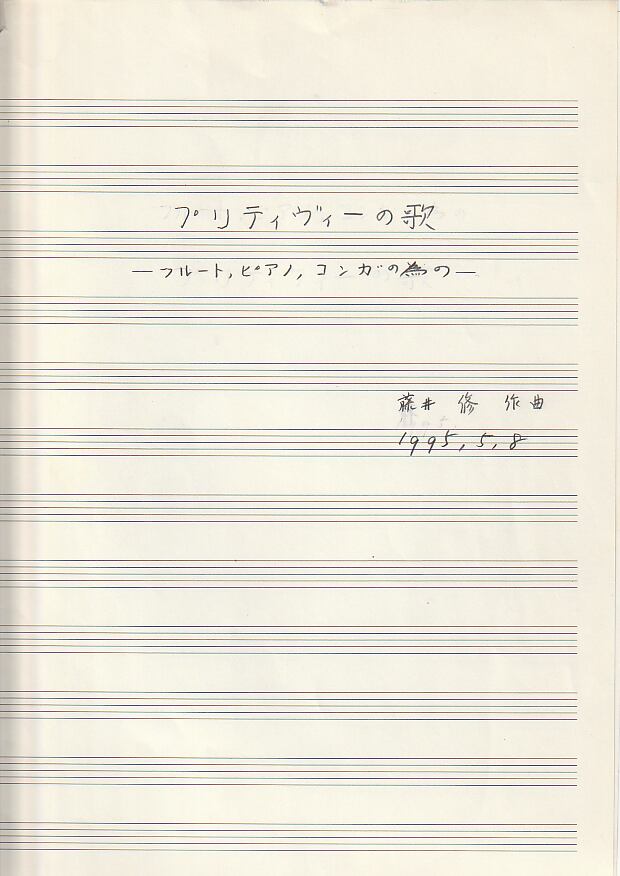 プリティヴィーの歌
―フルート,ピアノ,コンガの為の―
藤井 修 作曲
1995,5,8